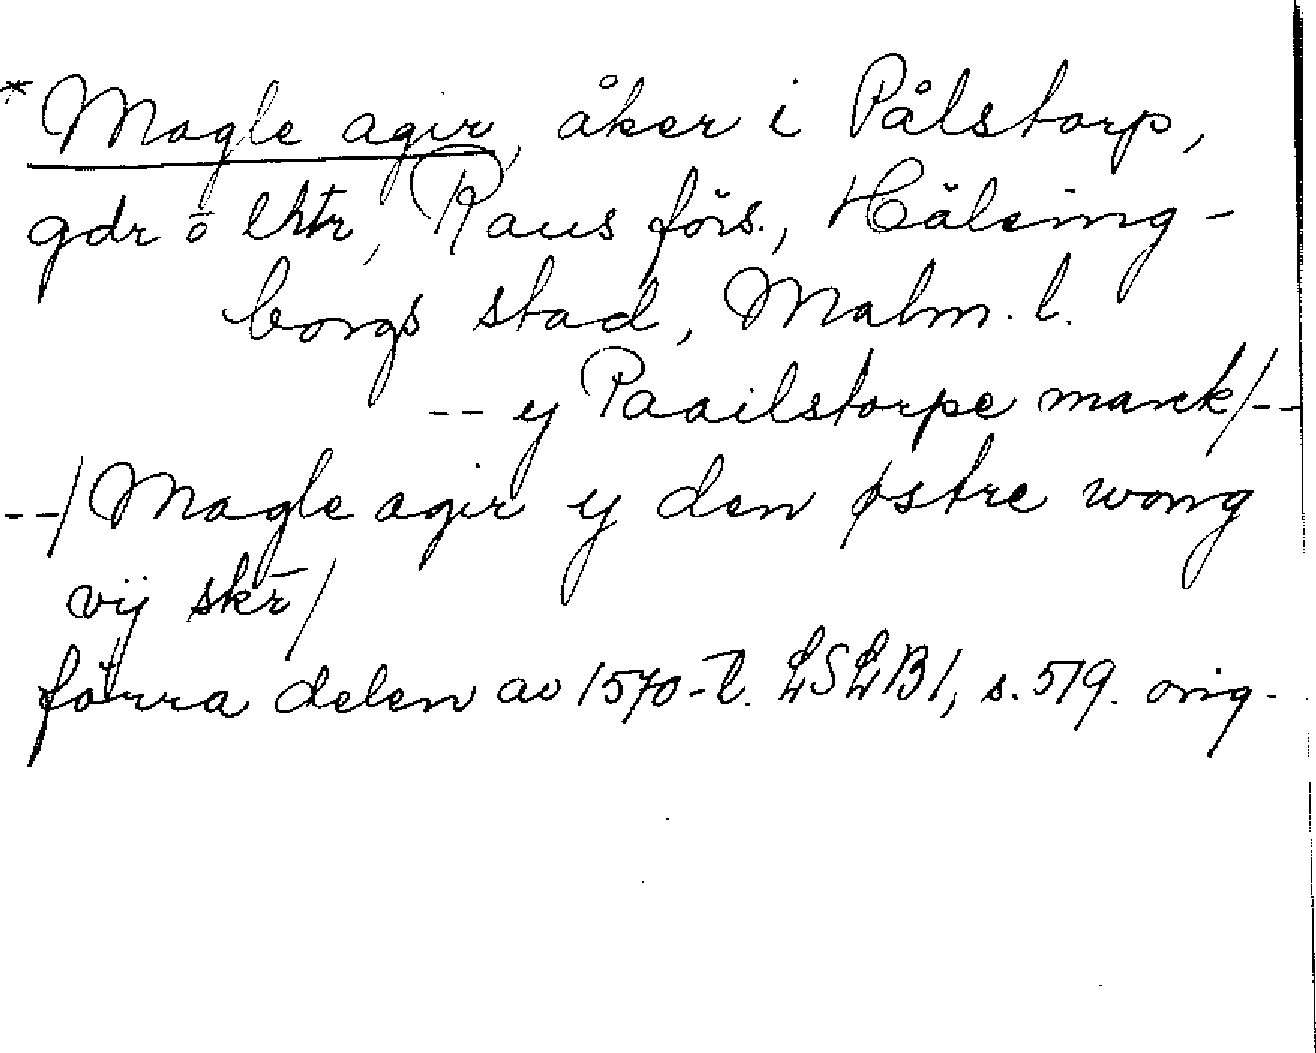 *Magle agir, åker i Pålstorp,
gdr o lhtr, Raus förs., Hälsing-
borgs stad, Malm. l.
-- y Paailstorpe marck/--
--/Magle agir y den østre wong
vij skr̄/
förra delen av 1570-t. LSLB1, s. 519. orig.